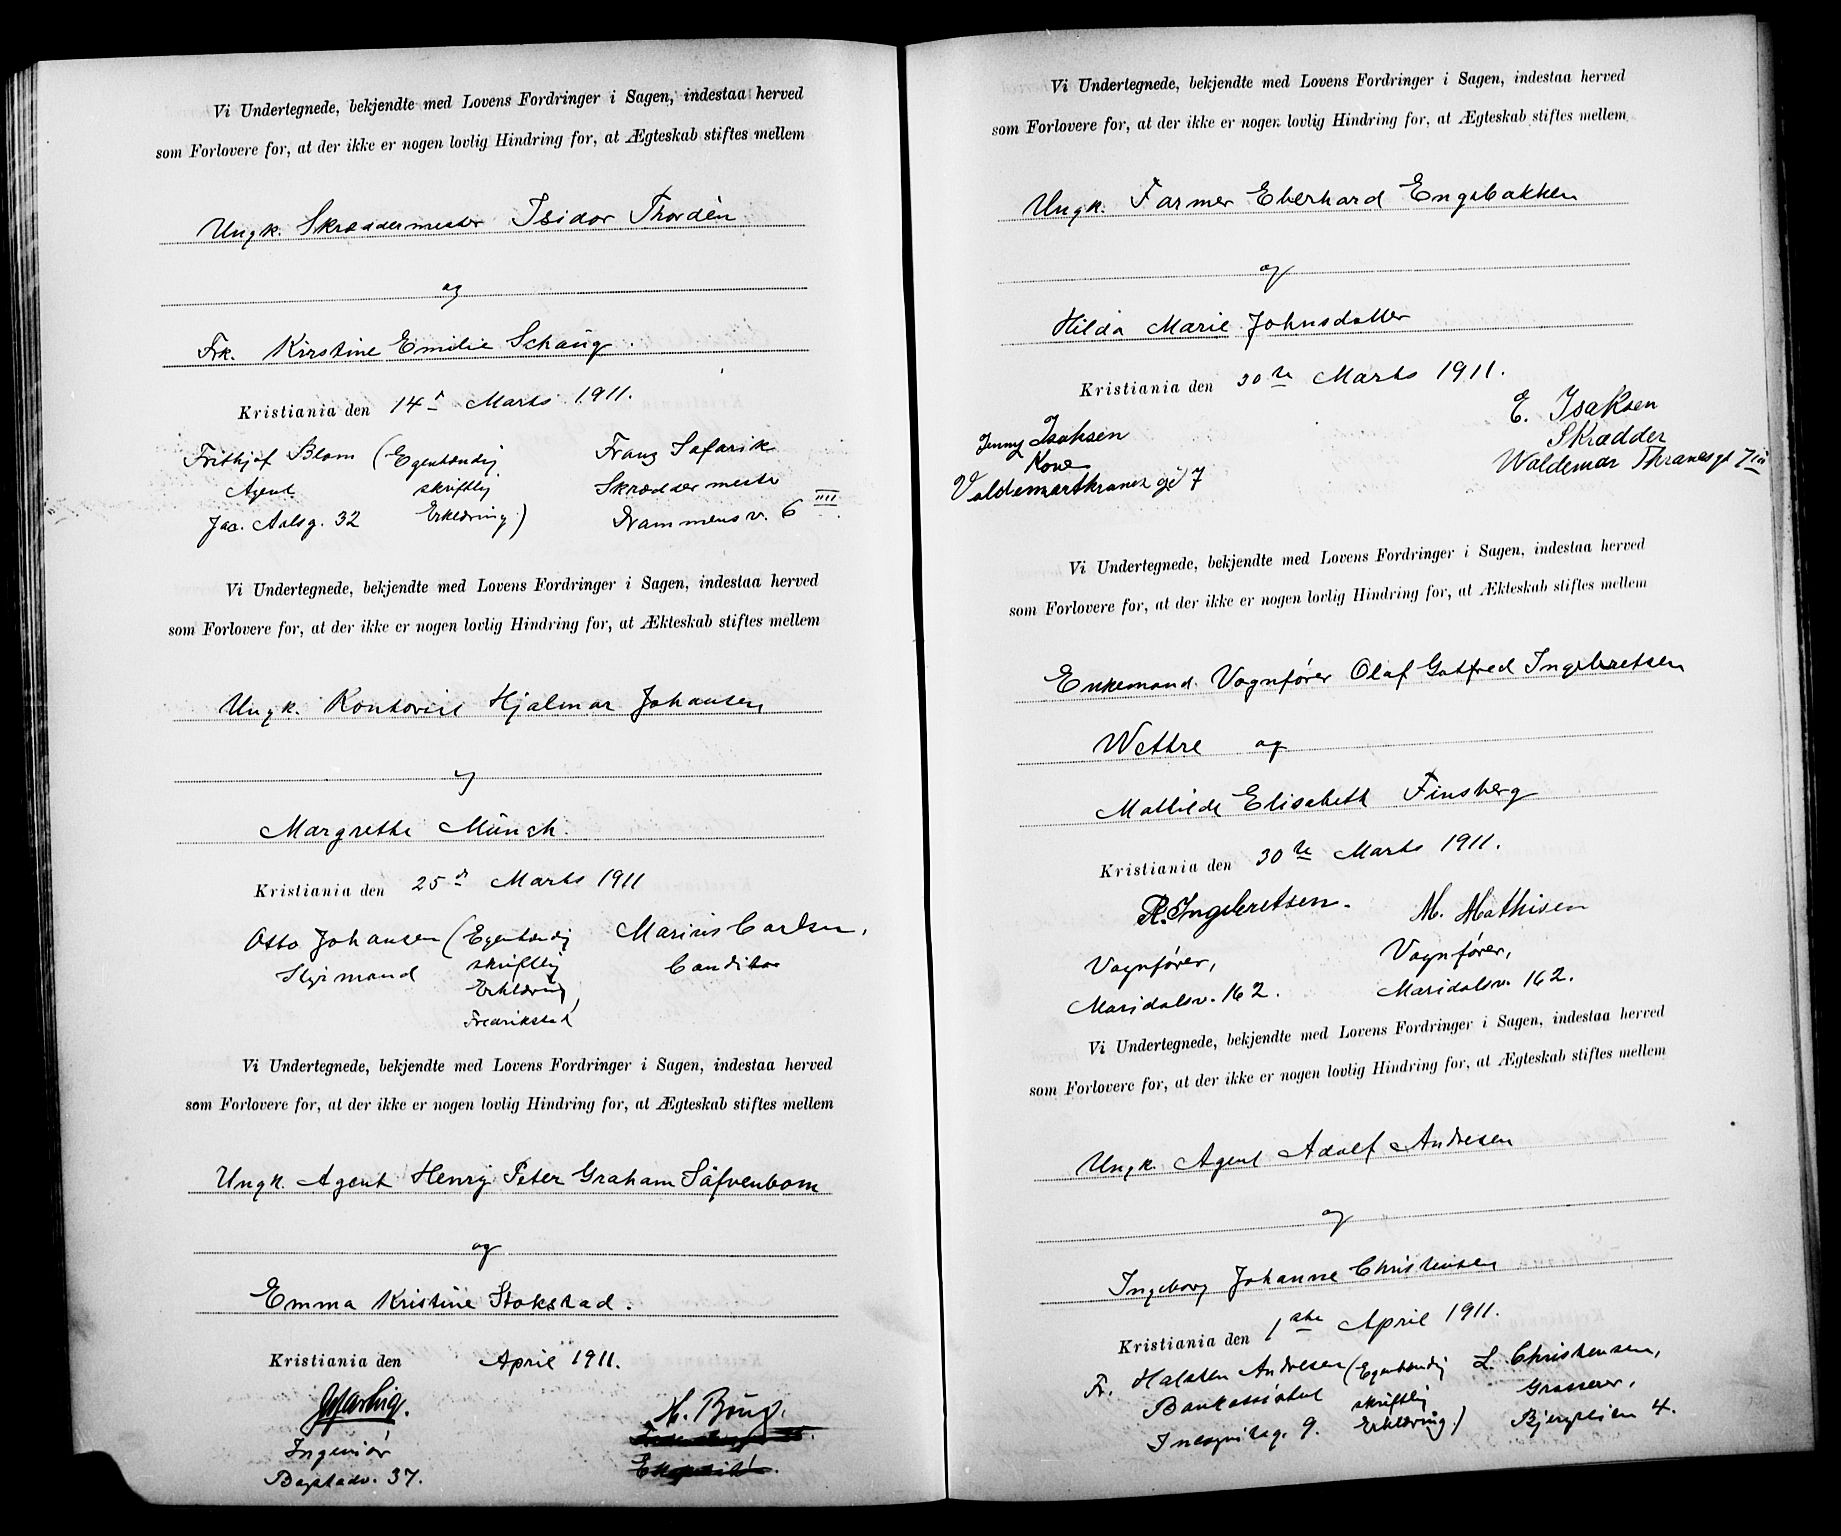 Vi Undertegnede, bekjendte med Lovens Fordringer i Sagen, indestaa herved
som Forlovere for, at der ikke er nogen lovlig Hindring for, at Ægteskab stiftes mellem
Ungk. Skræddermester Isidor Thordén
og
Frk. Kirstine Emilie Schaug.
Kristiania den 14d Marts 1911.
Frithjof Blom (Egenhændig
Agent skriftlig
Jac. Aalsg. 32 Erklæring)
Franz Safarik
Skræddermester
Drammensv. 6 IIII
Vi Undertegnede, bekjendte med Lovens Fordringer i Sagen, indestaa herved
som Forlovere for, at der ikke er nogen lovlig Hindring for, at Ækteskab stiftes mellem
Ungk. Kontorist Hjalmar Johansen
og
Margrethe Münch.
Kristiania den 25d Marts 1911
Otto Johansen (Egenhændig
Styrmand skriftlig
Erklæring,
Fredrikstad
Marius Carlsen,
Conditor
Vi Undertegnede, bekjendte med Lovens Fordringer i Sagen, indestaa herved
som Forlovere for, at der ikke er nogen lovlig Hindring for, at Ægteskab stiftes mellem
Ungk. Agent Henry Peter Graham Säfvenbom
og
Emma Kristine Stokstad.
Kristiania den April 1911.
Ingeniør
Bogstadv. 37.
M. Bong.
Vi Undertegnede, bekjendte med Lovens Fordringer i Sagen, indestaa herved
som Forlovere for, at der ikke er nogen lovlig Hindring for, at Ægteskab stiftes mellem
Ungk. Farmer Eberhard Engebakken
og
Hilda Marie Johnsdatter
Kristiania den 30te Marts 1911.
Jenny Isaksen
Kone
Valdemarthranes gd 7
E. Isaksen
Skrædder
Waldemar Thranesgt 7 III
Vi Undertegnede, bekjendte med Lovens Fordringer i Sagen, indestaa herved
som Forlovere for, at der ikke er nogen lovlig Hindring for, at Ækteskab stiftes mellem
Enkemand Vognfører Olaf Gotfred Ingebretsen
Wettre og
Mathilde Elisabeth Finsberg
Kristiania den 30te Marts 1911.
R. Ingebretsen.
Vognfører,
Maridalsv. 162.
M. Mathisen
Vognfører,
Maridalsv. 162.
Vi Undertegnede, bekjendte med Lovens Fordringer i Sagen, indestaa herved
som Forlovere for, at der ikke er nogen lovlig Hindring for, at Ægteskab stiftes mellem
Ungk. Agent Adolf Andresen
og
Ingeborg Johanne Christensen
Kristiania den 1ste April 1911.
Fr. Halsten Andresen (Egenhændig
Bankassistent skriftlig
Incognitog. 9. Erklæring)
L. Christensen,
Grosserer,
Bjergslien 4.